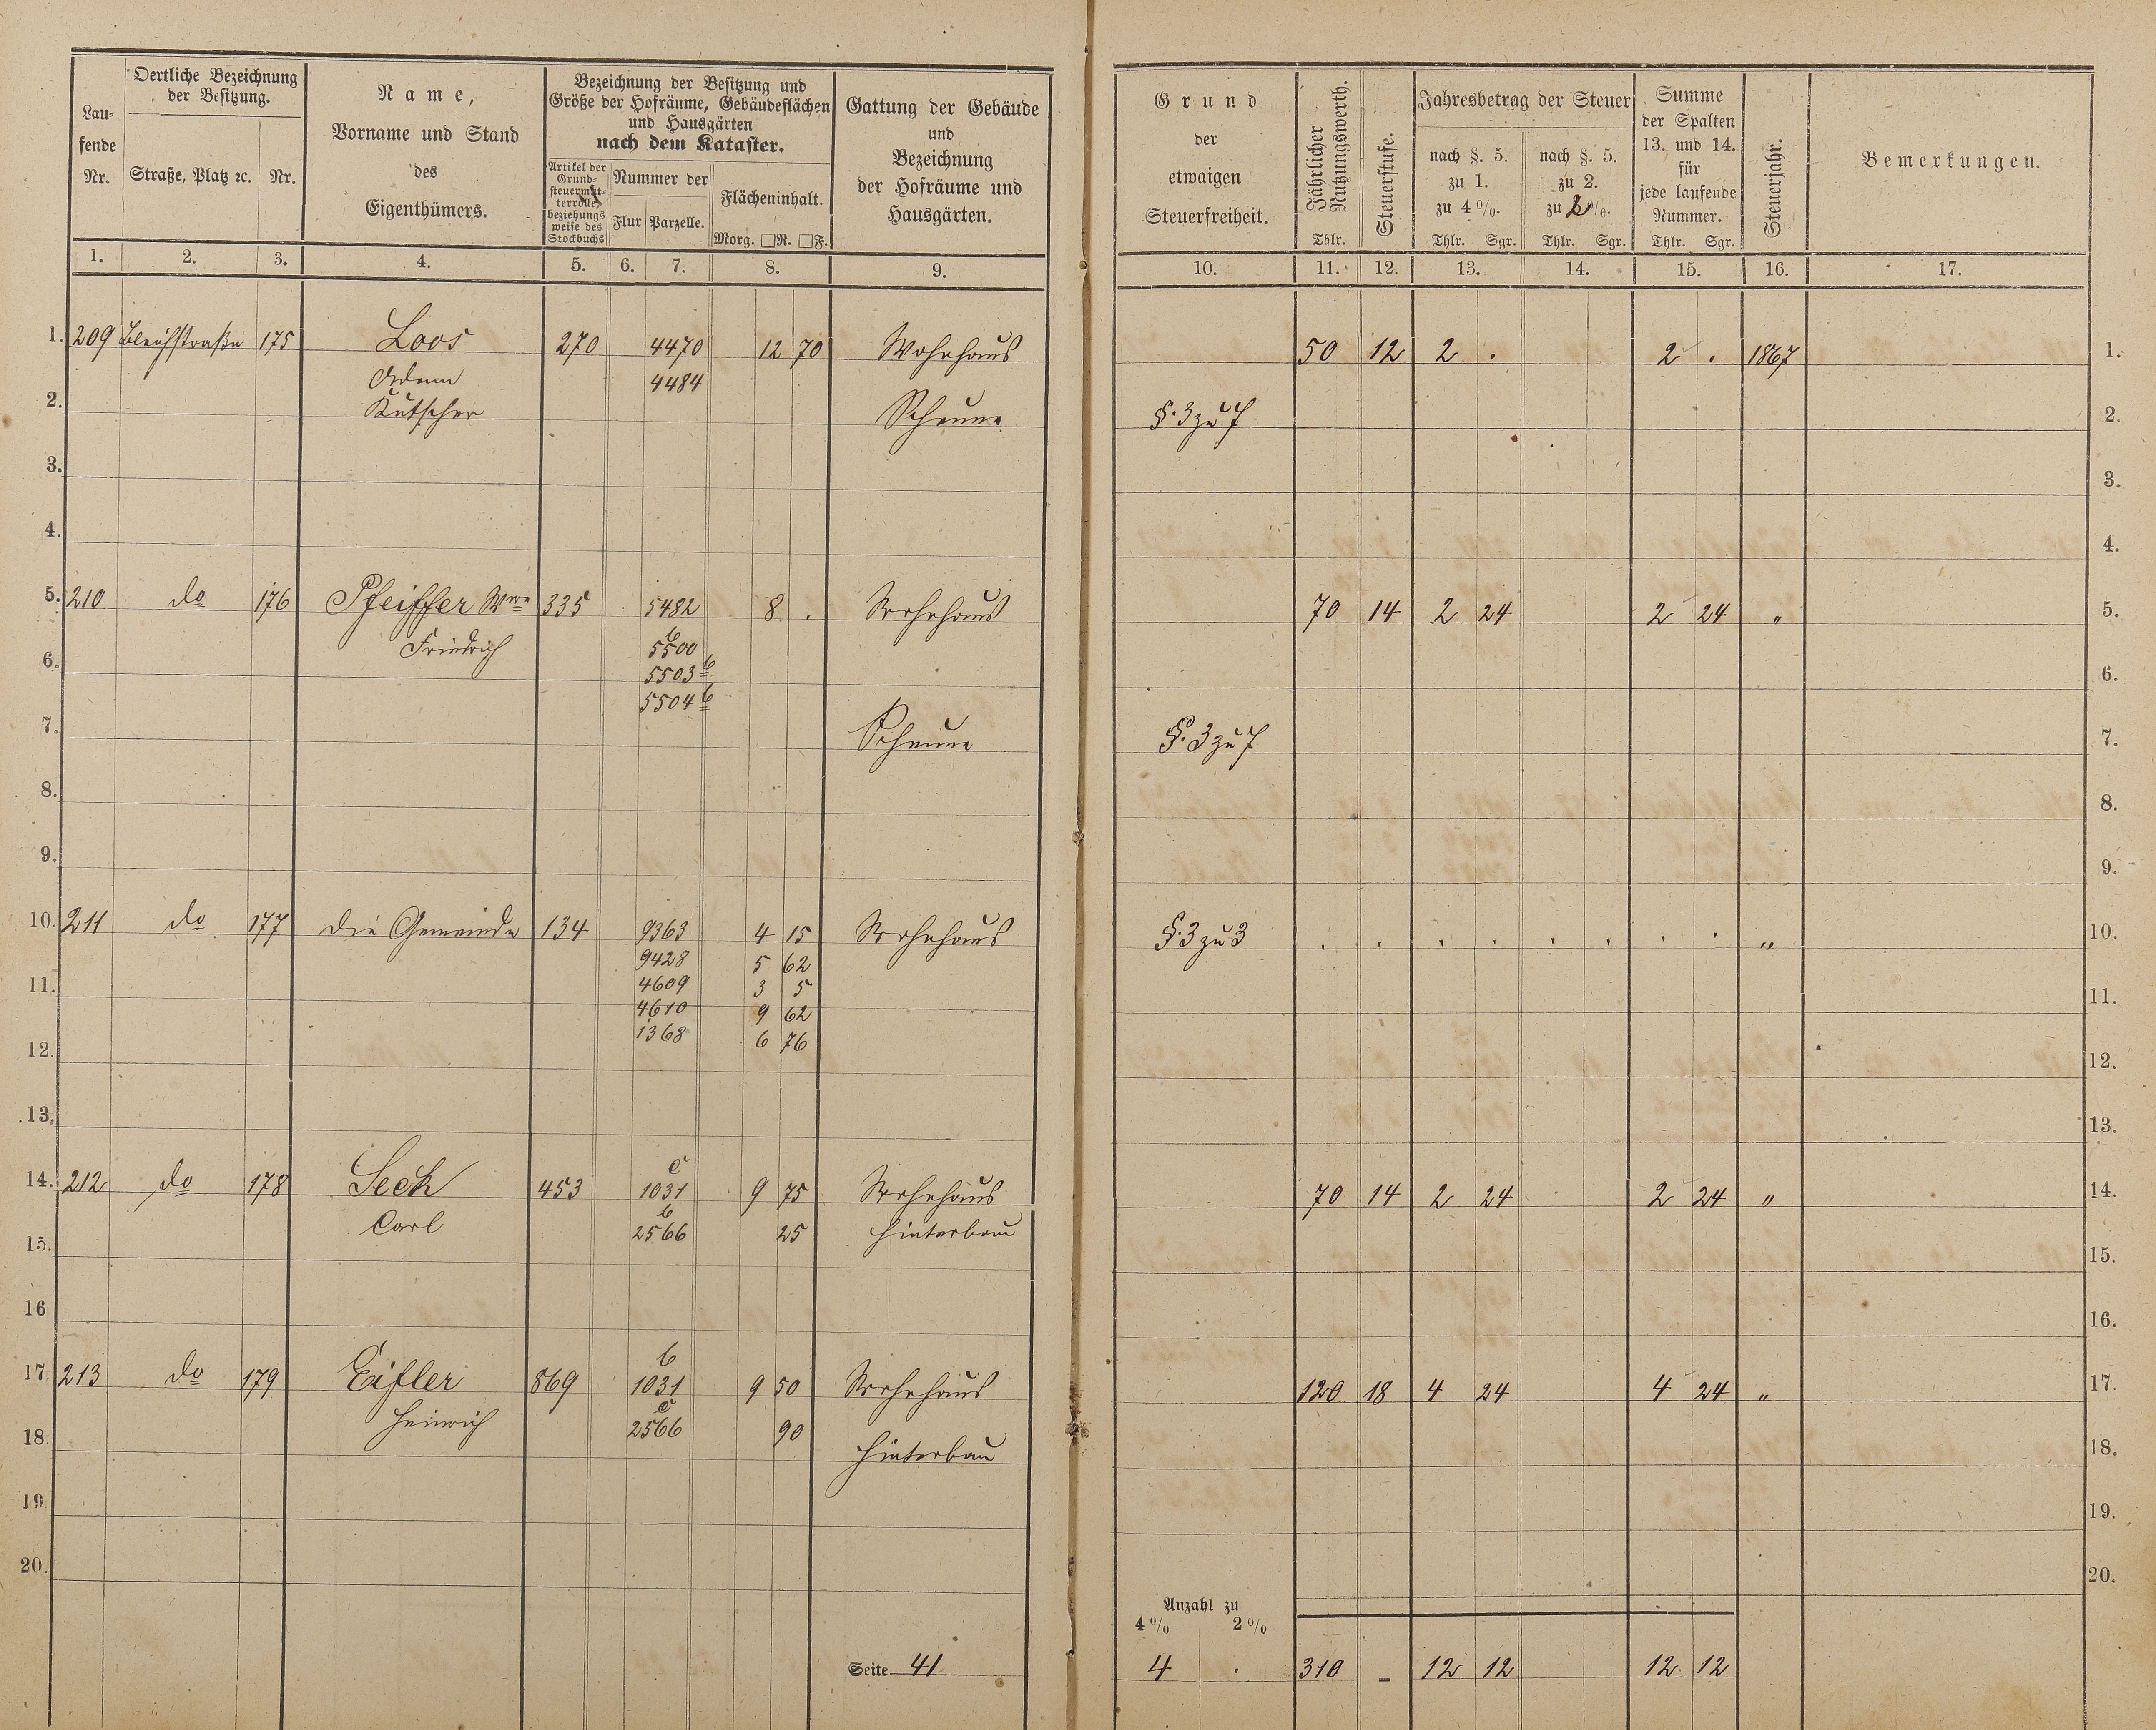 Laufende Nr.
Oertliche Bezeichnung der Besitzung.
Straße, Platz ꝛc.
Nr.
Name, Vorname und Stand des Eigenthümers.
Bezeichnung der Besitzung und Größe der Hofräume, Gebäudeflächen und Hausgärten nach dem Kataster.
Artikel der Grundsteuermutterrolle, beziehungsweise des Stockbuchs
Nummer der
Flur
Parzelle.
Flächeninhalt.
Morg. □R. □F.
Gattung der Gebäude und Bezeichnung der Hofräume und Hausgärten.
Grund der etwaigen Steuerfreiheit.
Jährlicher Nutzungswerth.
Thlr.
Steuerstufe.
Jahresbetrag der Steuer
nach §. 5. zu 1. zu 4 %.
Thlr. Sgr.
nach §. 5. zu 2. zu 2 %.
Thlr. Sgr.
Summe der Spalten 13. und 14. für jede laufende Nummer.
Thlr. Sgr.
Steuerjahr.
Bemerkungen.
1. 2. 3. 4. 5. 6. 7. 8. 9. 10. 11. 12. 13. 14. 15. 16. 17.
1. 209 Bleichstraße 175 Loos 270 4470 12 70 Wohnhaus 50 12 2 . 2 . 1867 1.
Adam 4484
2. Kutscher Scheune §. 3 zu 7 2.
3. 3.
4. 4.
5. 210 do 176 Pfeiffer Wwe 335 5482 8 . Wohnhaus 70 14 2 24 2 24 " 5.
Friedrich b 5500
6. 5503 b 6.
5504 b
7. Scheune §. 3 zu 7 7.
8. 8.
9. 9.
10. 211 do 177 Die Gemeinde 134 9363 4 15 Wohnhaus §. 3 zu 3 . . . . . . . . " 10.
9428 5 62
11. 4609 3 5 11.
4610 9 62
1368 6 76
12. 12.
13. 13.
14. 212 do 178 Seck 453 c 1031 9 75 Wohnhaus 70 14 2 24 2 24 " 14.
Carl b 2566 25 Hinterbau
15. 15.
16 16.
17. 213 do 179 Eifler 869 b 1031 9 50 Wohnhaus 120 18 4 24 4 24 " 17.
Heinrich c 2566 90
18. Hinterbau 18.
19. 19.
20. 20.
Anzahl zu
4 % 2 %
Seite 41 4 . 310 – 12 12 12 12